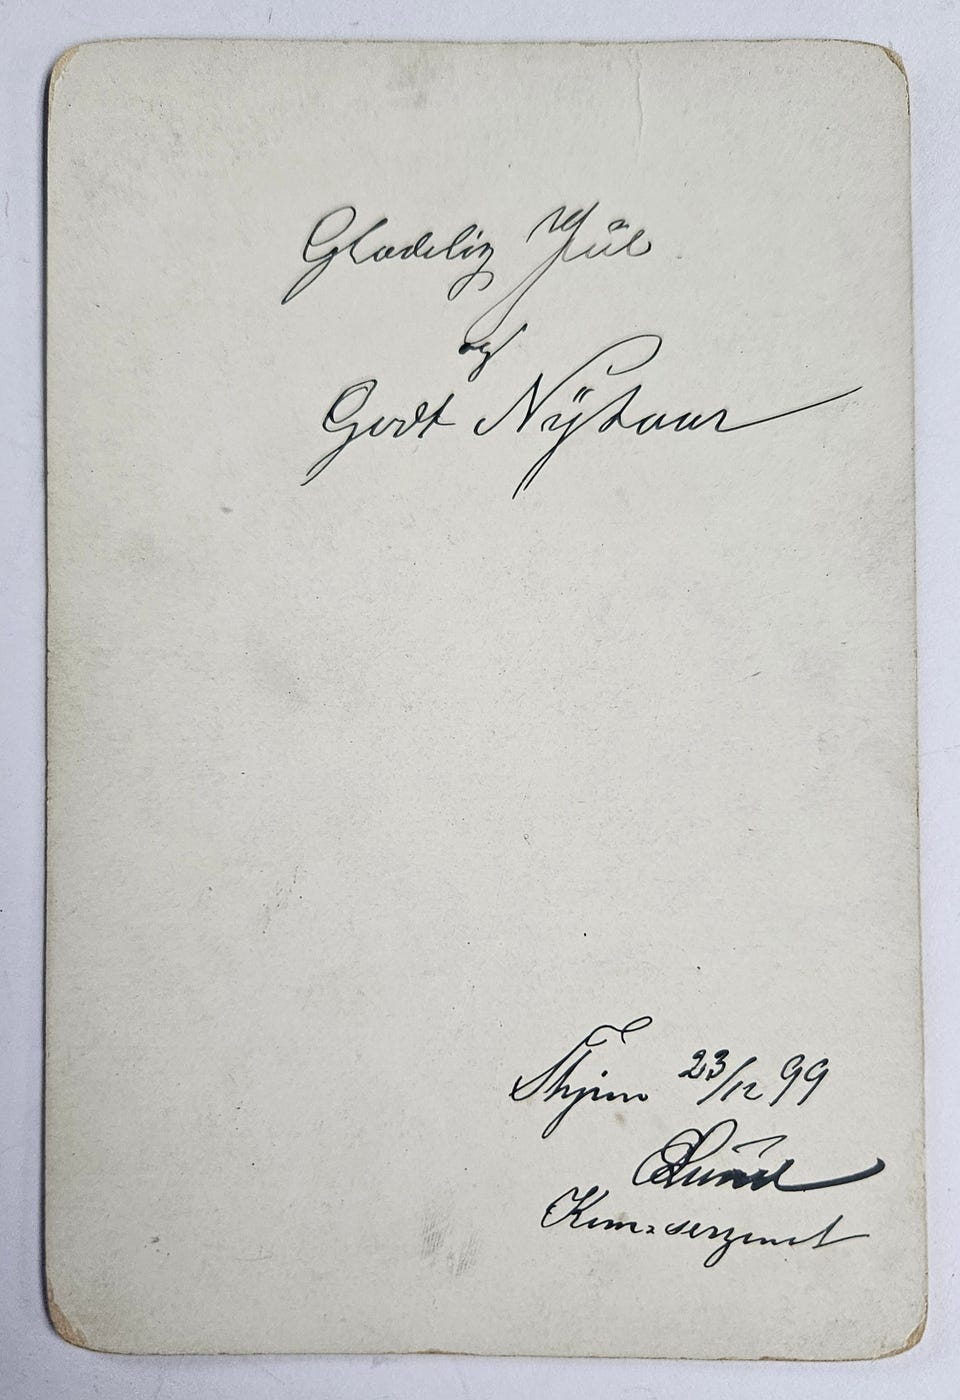 Glædelig Jül
og
Godt Nÿtaar
Thjem 23/12 99
Lund
Kom=sergent